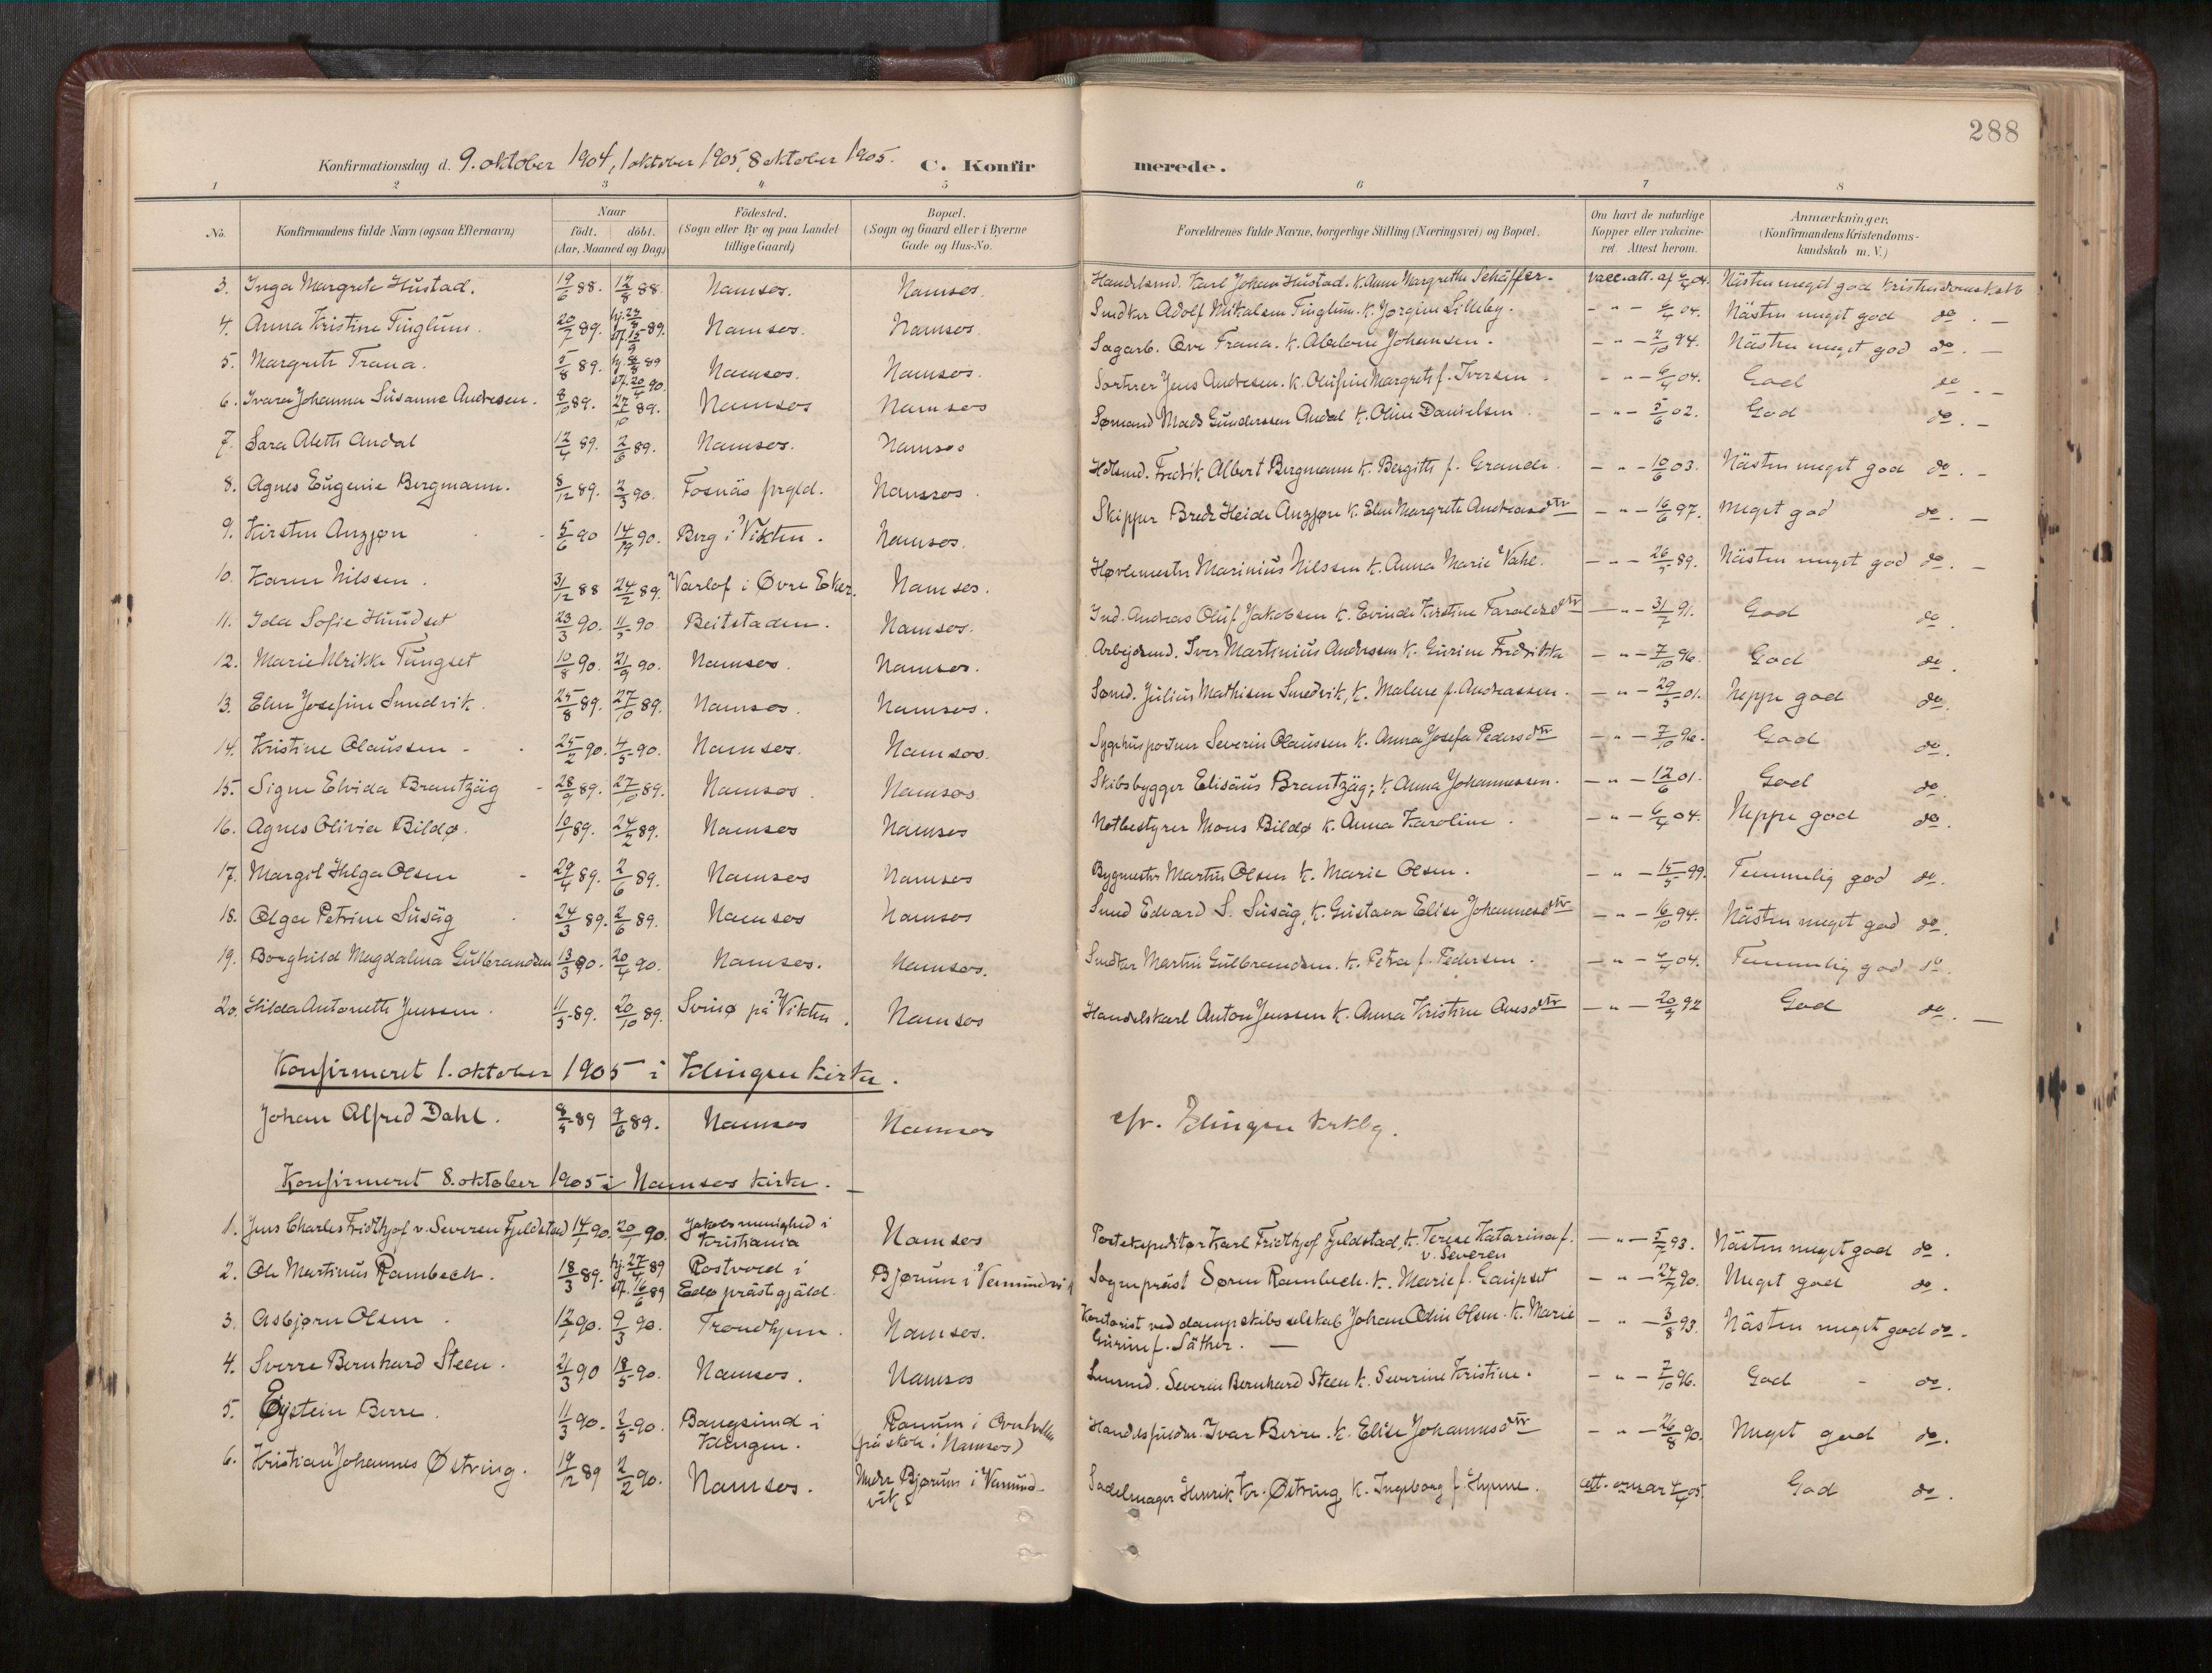 288
Konfirmationsdag d. 9. oktober 1904, 1 oktober 1905, 8 oktober 1905. C. Konfirmerede.
1 2 3 4 5 6 7 8
No. Konfirmandens fulde Navn (ogsaa Efternavn) Naar født. døbt. (Aar, Maaned og Dag) Födested. (Sogn eller By og paa Landet tillige Gaard) Bopæl. (Sogn og Gaard eller i Byerne Gade og Hus-No. Forældrenes fulde Navne, borgerlige Stilling (Næringsvei) og Bopæl. Om havt de naturlige Kopper eller vakcineret. Attest herom. Anmærkninger. (Konfirmandens Kristendomskundskab m. V.)
3. Inga Margrete Hustad. 19/6 88. 12/8 88. Namsos. Namsos. Handelsmd. Karl Johan Hustad. k. Anna Margrethe Schäffer. vacc.att. af 6/4 04. Nästen meget god kristendomskskb
4. Anna Kristine Tinglum. 20/7 89. Namsos. Namsos. Smedkar Adolf Mikalsen Tinglum. k. Jørgine Lilleby. - " - 6/4 04. Nästen meget god do. -
5. Margrete Trana. 5/8 89. Namsos. Namsos. Sagarb. Ove Trana. k. Abelone Johansen. - " - 7/10 94. Nästen meget god do. -
6. Ivara Johanna Susanne Andresen. 8/10 89. 27/10 89. Namsos Namsos Sorterer Jens Andresen. k. Olufine Margrete f. Iversen. - " - 6/4 04. God do. -
7. Sara Aleth Andal 12/4 89. 2/6 89. Namsos. Namsos Sømand Mads Gunderssen Andal k. Oline Danielsen - " - 5/6 02. God do. -
8. Agnes Eugenie Bergmann. 8/12 89. 2/3 90. Fosnäs prgld. Namsos. Hdlsmd. Fredrik Albert Bergmann k. Bergitte f. Grande. - " - 10/6 03. Nästen meget god do. -
9. Kirsten Anzjøn 5/6 90 Berg i Vikten. Namsos. Skipper Bredr Heide Anzjøn k. Elen Margrete Andreasdtr - " - 16/6 97. Meget god do. -
10. Karen Nilssen. 31/12 88 24/2 89. Varlof i Øvre Eker. Namsos. Høvlemester Marinius Nilssen k. Anna Marie Vahl. Nästen meget god do. -
11. Ida Sofie Hundset 23/3 90. 11/5 90 Beitstaden. Namsos. Ind. Andreas Oluf Jakobsen k. Evinde Kirstine Faraldsdtr God do.
12. Marie Ulrikke Tungset 10/8 90. 21/9 90. Namsos. Namsos. Arbeidsmd. Iver Martinius Anderssen k. Gurine Fredrikka - " - 7/10 96. God do.
13. Elen Josefine Smedvik. 25/8 89. 27/10 89. Namsos. Namsos. Sømd. Julius Mathisen Smedvik, k. Malene f. Andreassen. - " - 29/5 01. Neppe god do.
14. Kristine Olaussen 25/2 90. 4/5 90. Namsos. Namsos. Sygehusportner Severin Olaussen k. Anna Josefa Pedersdtr - " - 7/10 96. God do.
15. Signe Elvida Brantzäg 28/9 89. 27/10 89. Namsos. Namsos Skibsbygger Elisäus Brantzäg; k Anna Johannessen. - " - 12/6 01. God do.
16. Agnes Olivia Bildø. 10/1 89. 24/2 89. Namsos Namsos Notbestyrer Mons Bildø k. Anna Karoline. - " - 6/4 04. Neppe god do.
17. Margit Helga Olsen 29/4 89. 2/6 89. Namsos Namsos Bygmester Martin Olsen k. Marie Olsen. - " - 15/5 99. Temmelig god do.
18. Olga Petrine Susäg 24/3 89. 2/6 89. Namsos Namsos Smed Edvard S. Susäg, k. Gustava Elise Johannesdtr - " - 16/10 94. Nästen meget god do.
19. Borghild Magdalena Gulbrandsen 13/3 90. 20/4 90. Namsos. Namsos. Smedkar Martin Gulbrandsen. k. Petra f. Pedersen. - " - 6/4 04. Temmelig god do.
20. Hilda Antonette Jenssen. 11/5 89. 20/10 89. Svinø på Vikten. Namsos Handelskarl Anton Jenssen k. Anna Kristine Amsdtr God do. -
Konfirmeret 1. oktober 1905 i Klingen kirke.
Johan Alfred Dahl. 8/5 89 9/6 89. Namsos Namsos cfr. Klingen krkbg.
Konfirmeret 8. oktober 1905 i Namsos kirke. -
1. Jens Charles Fridthjof v. Severen Fjeldstad 14/1 90. Jakobs menighed i Kristiania Namsos Postexpeditør Karl Fridthjof Fjeldstad, k. Terese Katarina f. v. Severen Nästen meget god do.
2. Ole Martinus Rambech. 18/3 89. hj. 27/4 89 df. 16/6 89 Rostvold i Edø prästegjäld. Bjørum i Vemundvik Sogneprest Søren Rambech. k. Marie f. Gaupset Meget god do.
3. Asbjørn Olsen 12/1 90. 9/3 90. Trondhjem. Namsos. Kontorist ved dampskibsselskab Johan Odin Olsen. k. Marie Gurine f. Säther. - - " - 3/8 93. Nästen meget god do.
4. Sverre Bernhard Steen. 21/3 90 18/5 90. Namsos. Namsos Severin Bernhard Steen k. Severine Kristine. - " - 7/10 96. God do.
5. Eystein Berre. 11/3 90. Bangsund i Klingen. Ranum i Overhalla (på skole i Namsos) Ivar Berre. k. Elise Johannesdtr - " - 26/8 90. Meget god do.
6. Kristian Johannes Østring. 19/12 89 2/2 90. Namsos. Nedre Bjørum i Vemundvik Sadelmager Henrik Kr. Østring k. Ingeborg f. Hynne. God do.